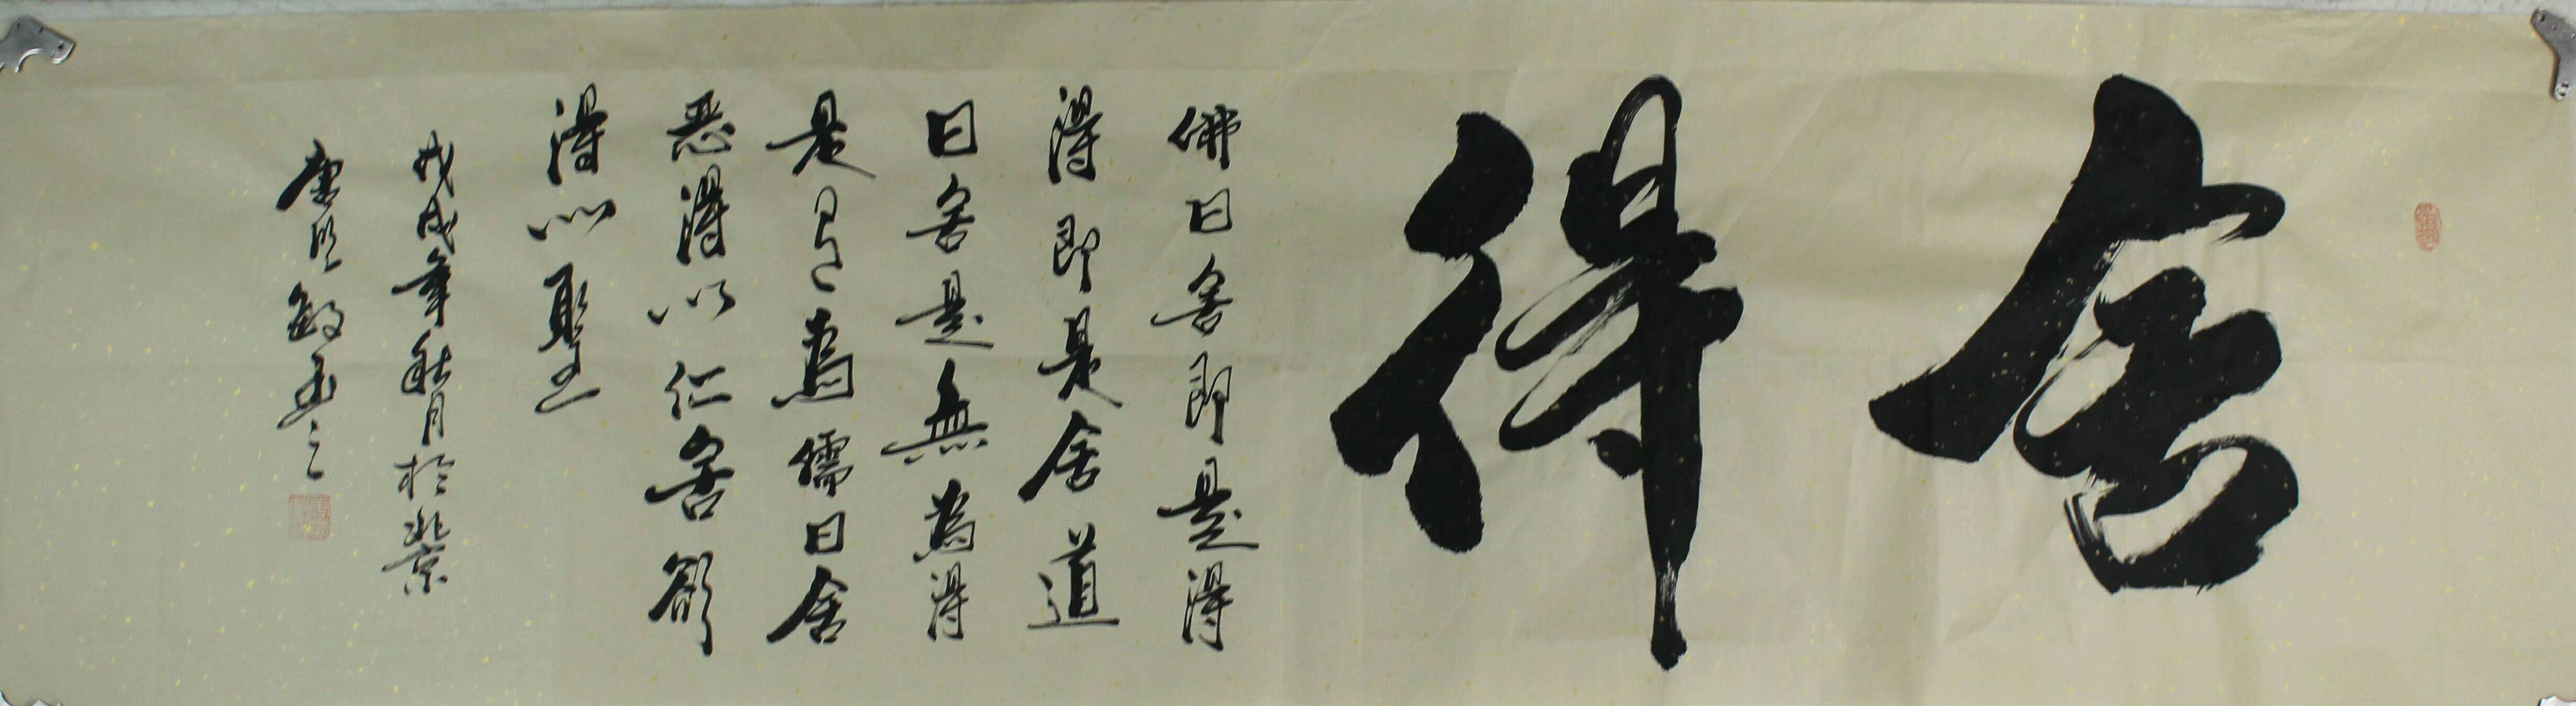 舍得
佛曰舍即是得
得即是舍道
曰舍是無為得
是有為儒曰舍
惡得以仁舍欲
得以聖
戊戌年秋月於北京